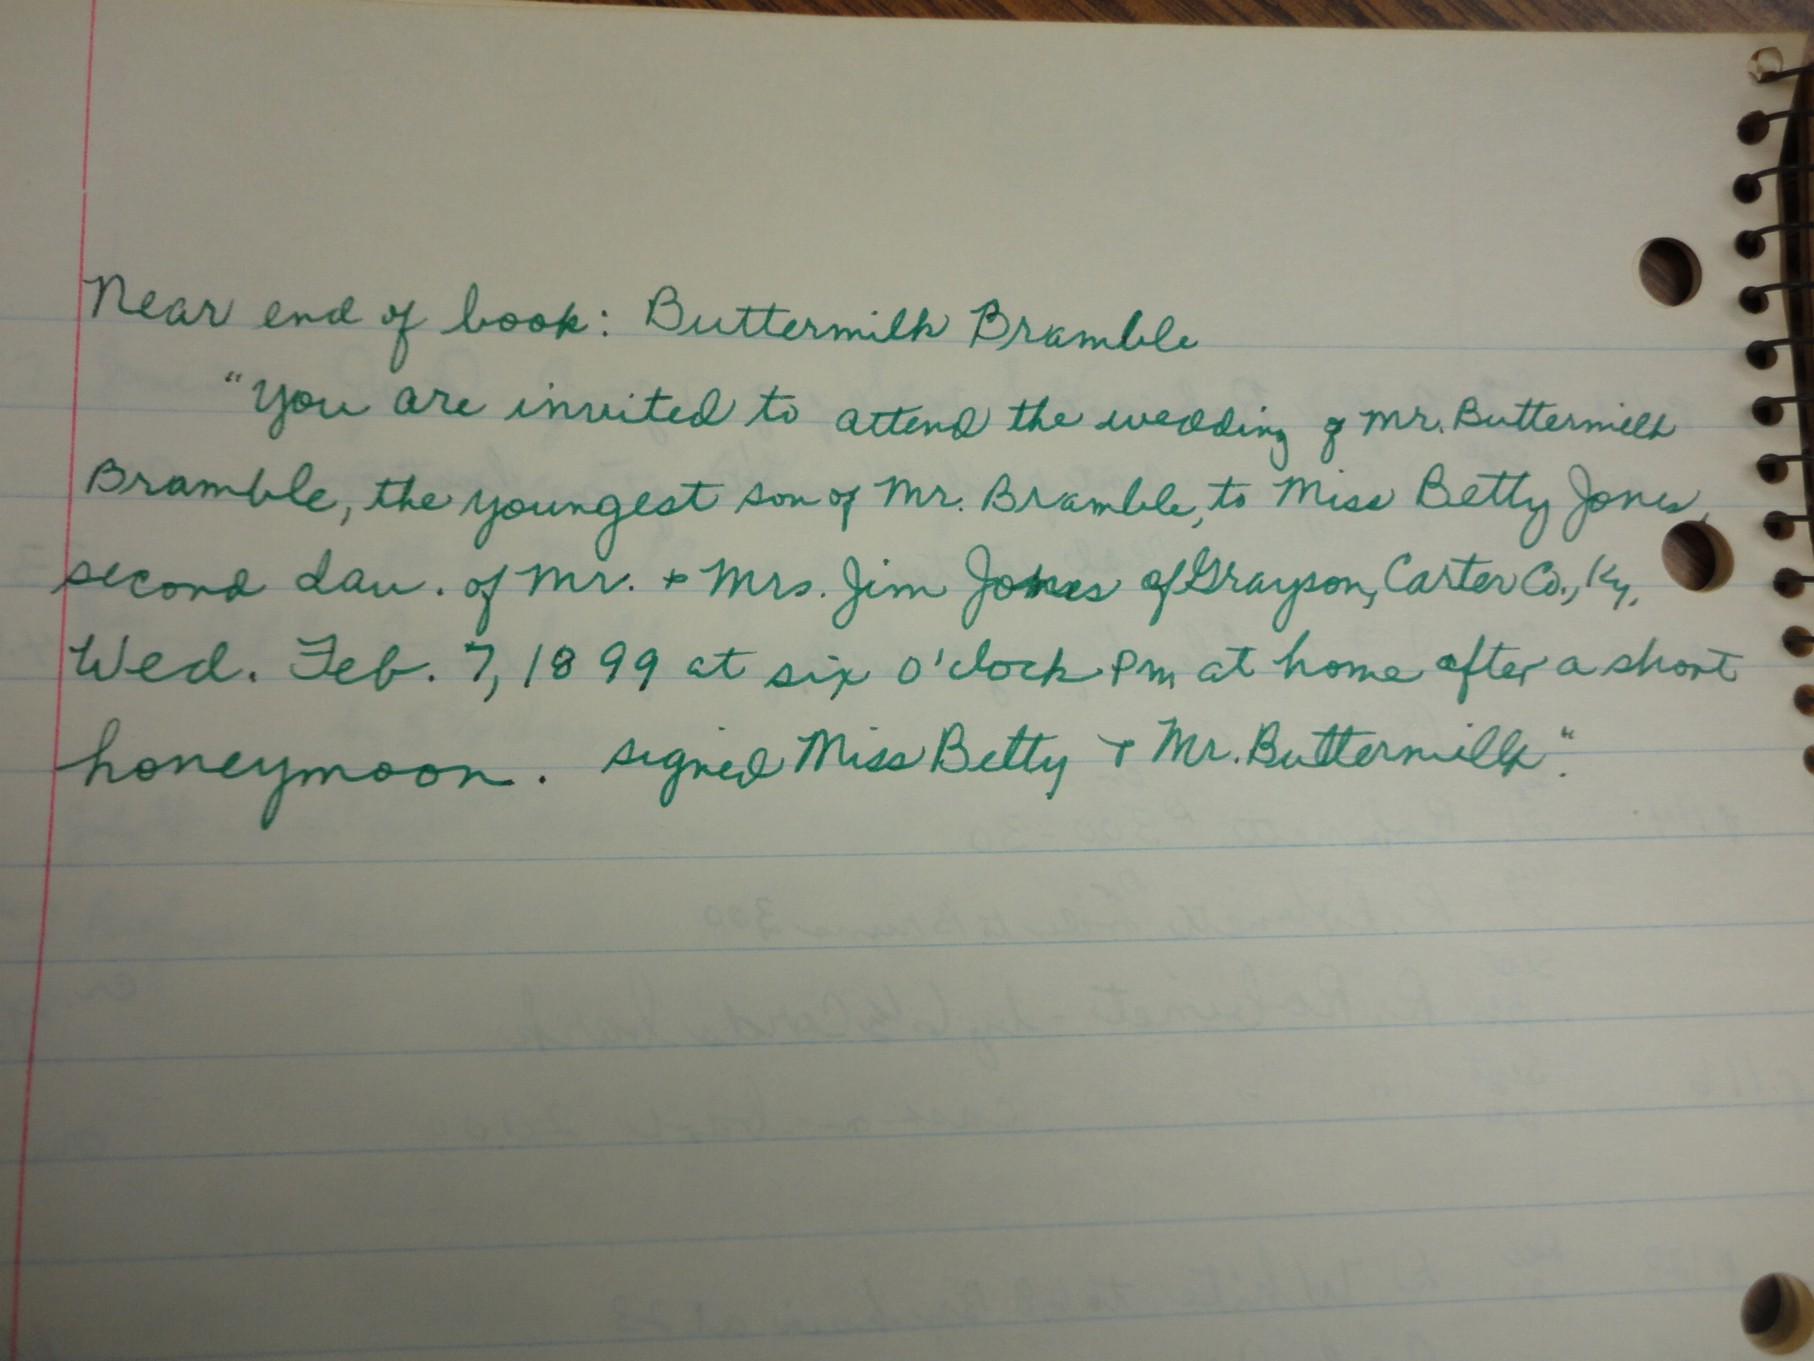 Near end of book: Buttermilk Bramble
"You are invited to attend the wedding of Mr. Buttermilk
Bramble, the youngest son of Mr. Bramble, to Miss Betty Jones,
second dau. of Mr. + Mrs. Jim Jones of Grayson, Carter Co., Ky,
Wed. Feb. 7, 1899 at six o'clock Pm at home after a short
honeymoon. signed Miss Betty + Mr. Buttermilk".